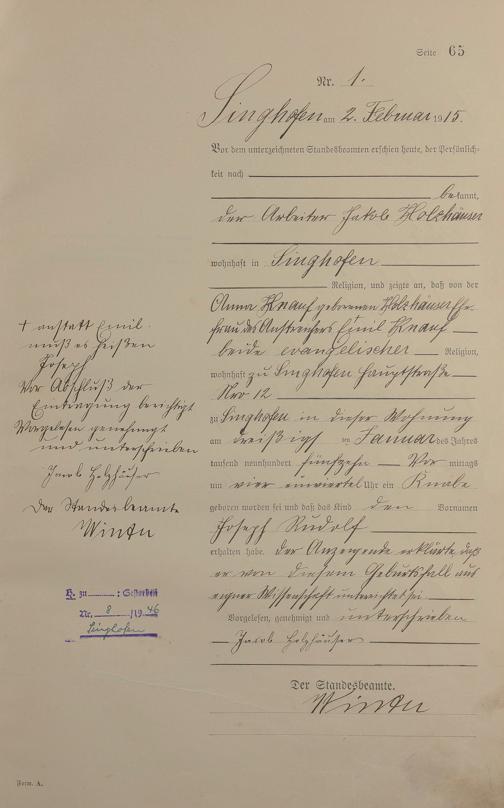 Seite 65
Nr. 1.
Singhofen am 2. Februar 1915.
Vor dem unterzeichneten Standesbeamten erschien heute, der Persönlich-
keit nach
bekannt,
der Arbeiter Jakob Holzhäuser
wohnhaft in Singhofen
Religion, und zeigte an, daß von der
Anna Knauf geborenen Holzhäuser Ehe-
frau des Anstreichers Emil Knauf
beide evangelischer Religion,
wohnhaft zu Singhofen Hauptstraße
Nro 12
zu Singhofen in dieser Wohnung
am dreißigst ten Januar des Jahres
tausend neunhundert fünfzehn Vor mittags
um vier einviertel Uhr ein Knabe
geboren worden sei und daß das Kind den Vornamen
Joseph Rudolf
erhalten habe. Der Anzeigende erklärte daß
er von diesem Geburtsfall aus
eigner Wissenschaft unterrichtet sei
Vorgelesen, genehmigt und unterschrieben
Jacob Holzhäuser
Der Standesbeamte.
† anstatt Emil
muß es heißen
Joseph
Vor Abschluß der
Eintragung berichtigt
Vorgelesen genehmigt
und unterschrieben
Jacob Holzhäuser
Der Standesbeamte
zu : Gestorben
Nr. 8 /1946
Singhofen
Form. A.